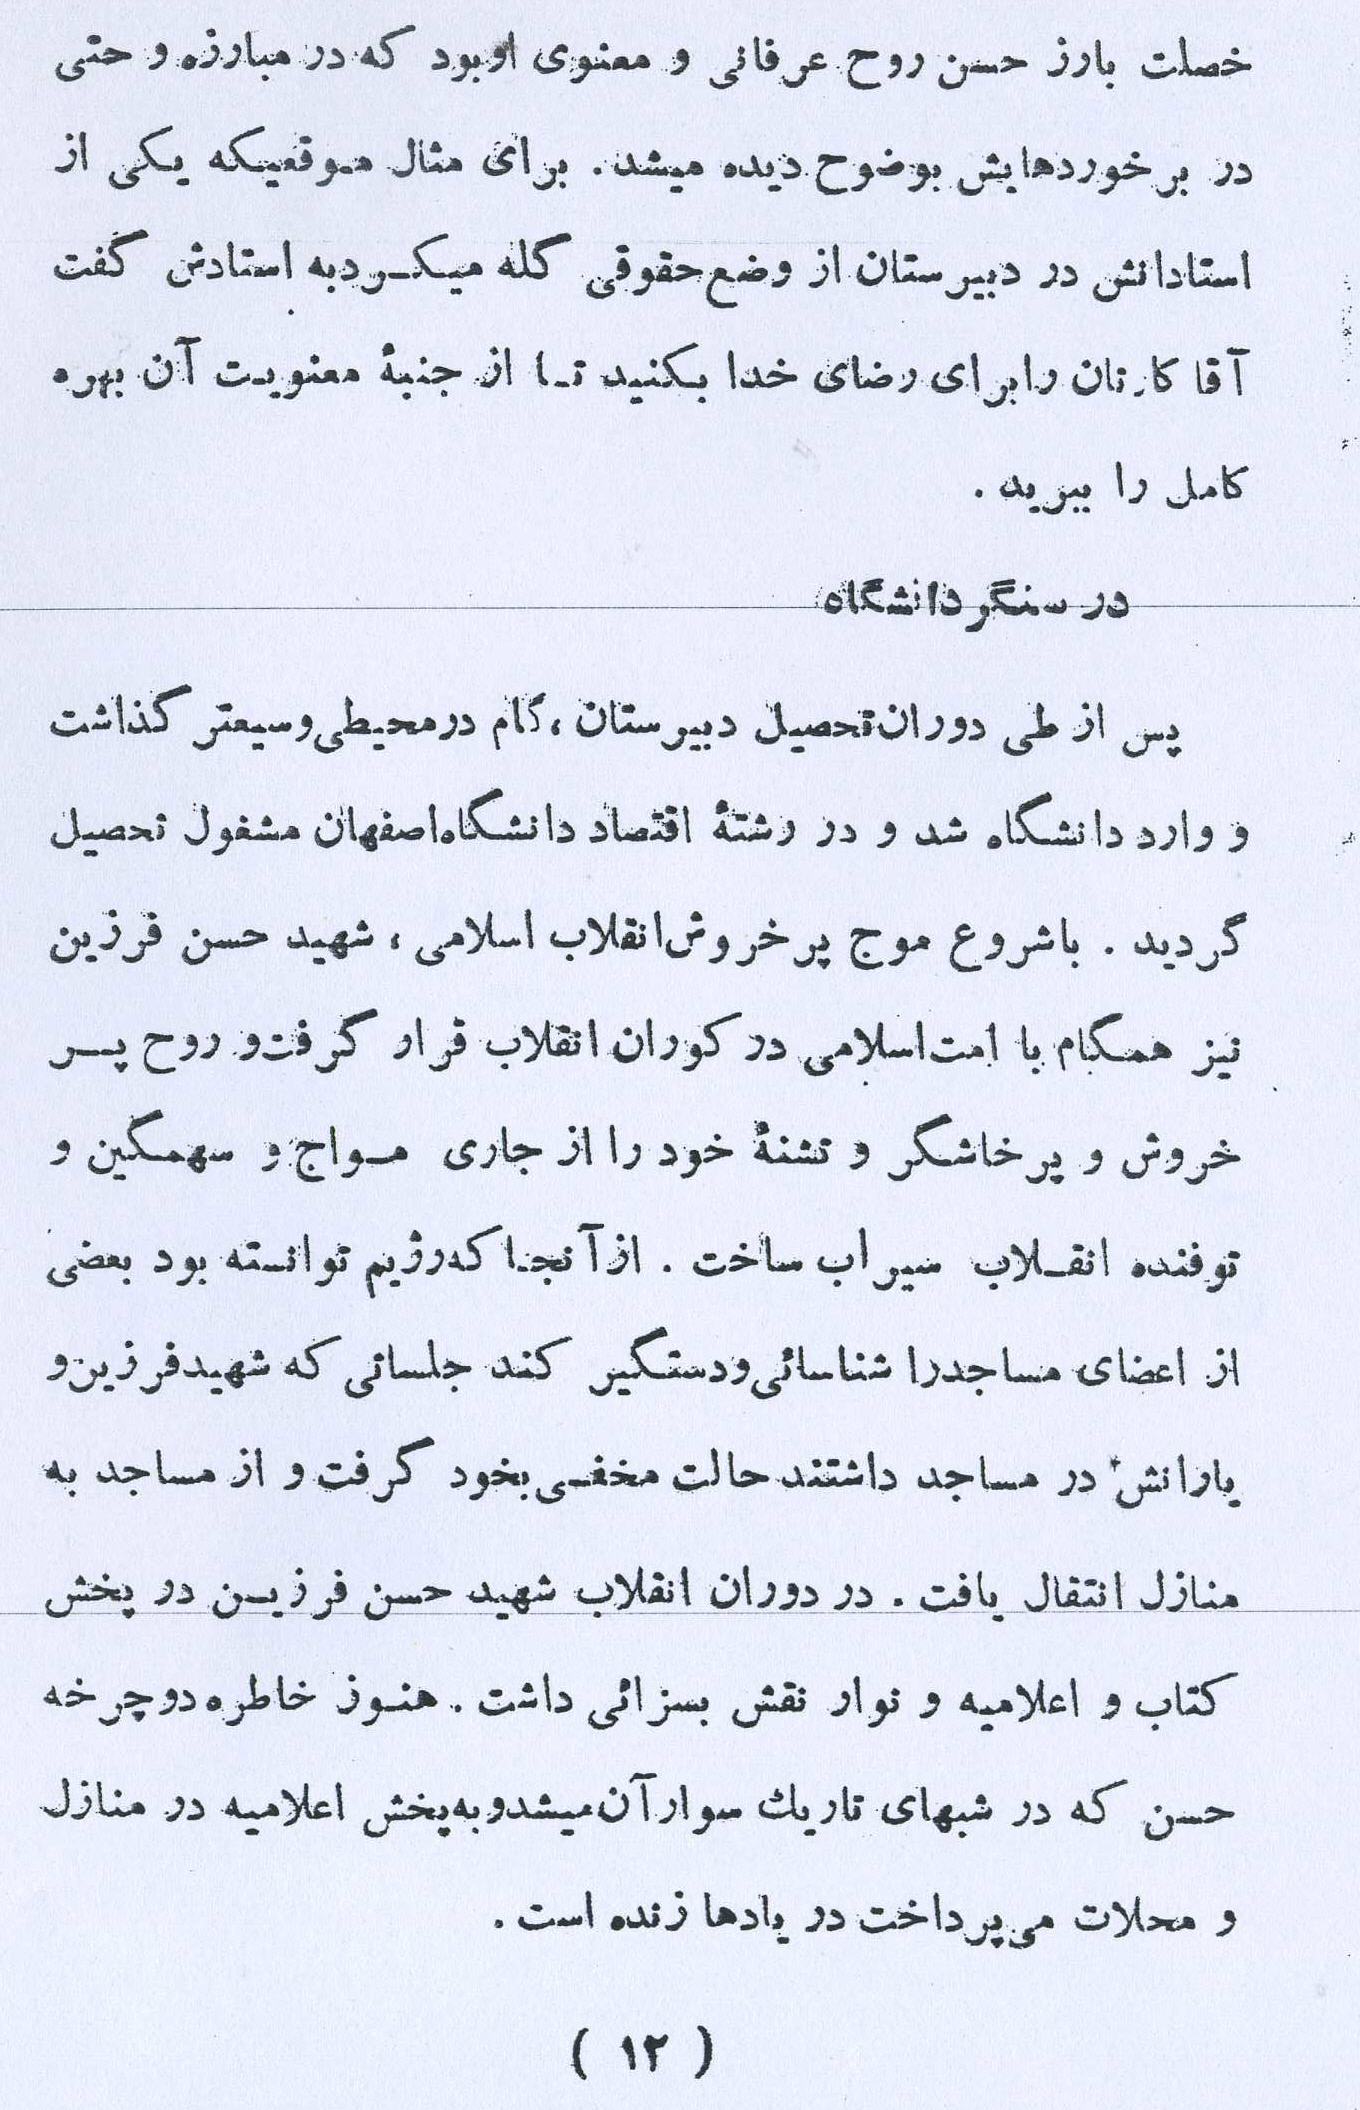 خصلت بارز حسن روح عرفانی و معنوی او بود که در مبارزه و حتی
در برخوردهایش بوضوح دیده میشد. برای مثال موقعیکه یکی از
استادانش در دبیرستان از وضع حقوقی گله میکرد به استادش گفت
آقا کارتان را برای رضای خدا بکنید تا از جنبهٔ معنویت آن بهره
کامل را ببرید .
در سنگر دانشگاه
پس از طی دوران تحصیل دبیرستان ، گام در محیطی وسیعتر گذاشت
و وارد دانشگاه شد و در رشتهٔ اقتصاد دانشگاه اصفهان مشغول تحصیل
گردید . باشروع موج پر خروش انقلاب اسلامی ، شهید حسن فرزین
نیز همگام با امت اسلامی در کوران انقلاب قرار گرفت و روح پر
خروش و پرخاشگر و تشنهٔ خود را از جاری مواج و سهمگین و
توفنده انقلاب سیراب ساخت . از آنجا که رژیم توانسته بود بعضی
از اعضای مساجد را شناسائی و دستگیر کند جلساتی که شهید فرزین و
یارانش در مساجد داشتند حالت مخفی بخود گرفت و از مساجد به
منازل انتقال یافت . در دوران انقلاب شهید حسن فرزین در پخش
کتاب و اعلامیه و نوار نقش بسزائی داشت . هنوز خاطره دوچرخه
حسن که در شبهای تاریك سوار آن میشد و به پخش اعلامیه در منازل
و محلات می پرداخت در یادها زنده است .
( ۱۲ )